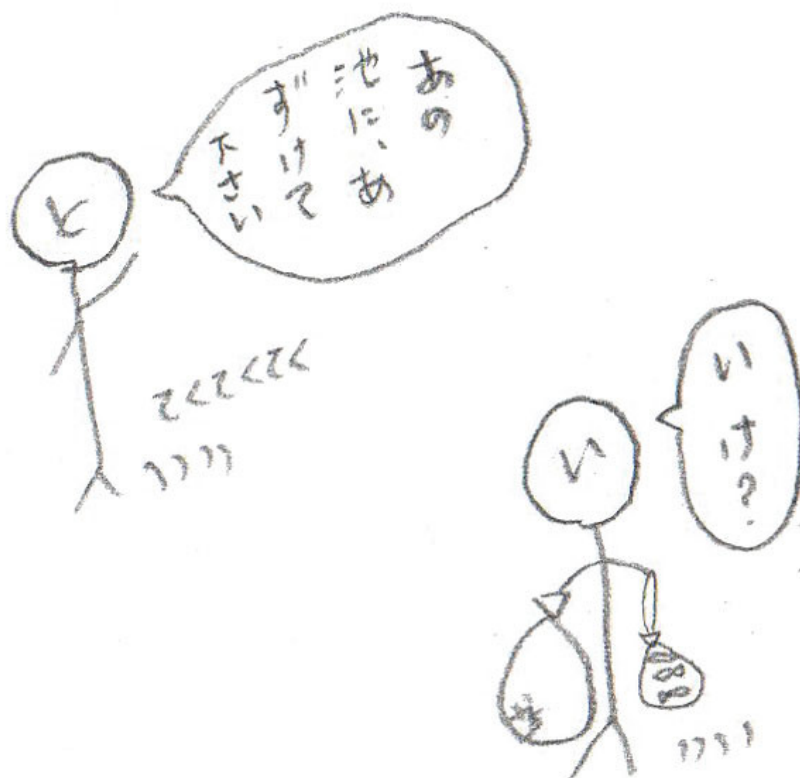 あの
池に、あ
ずけて
下さい
と
てくてくてく
いけ?
い